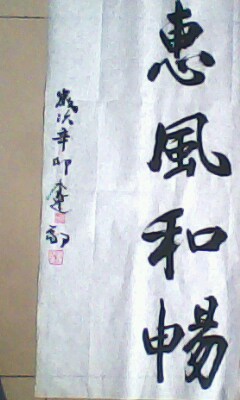 惠風和暢
歲次辛卯